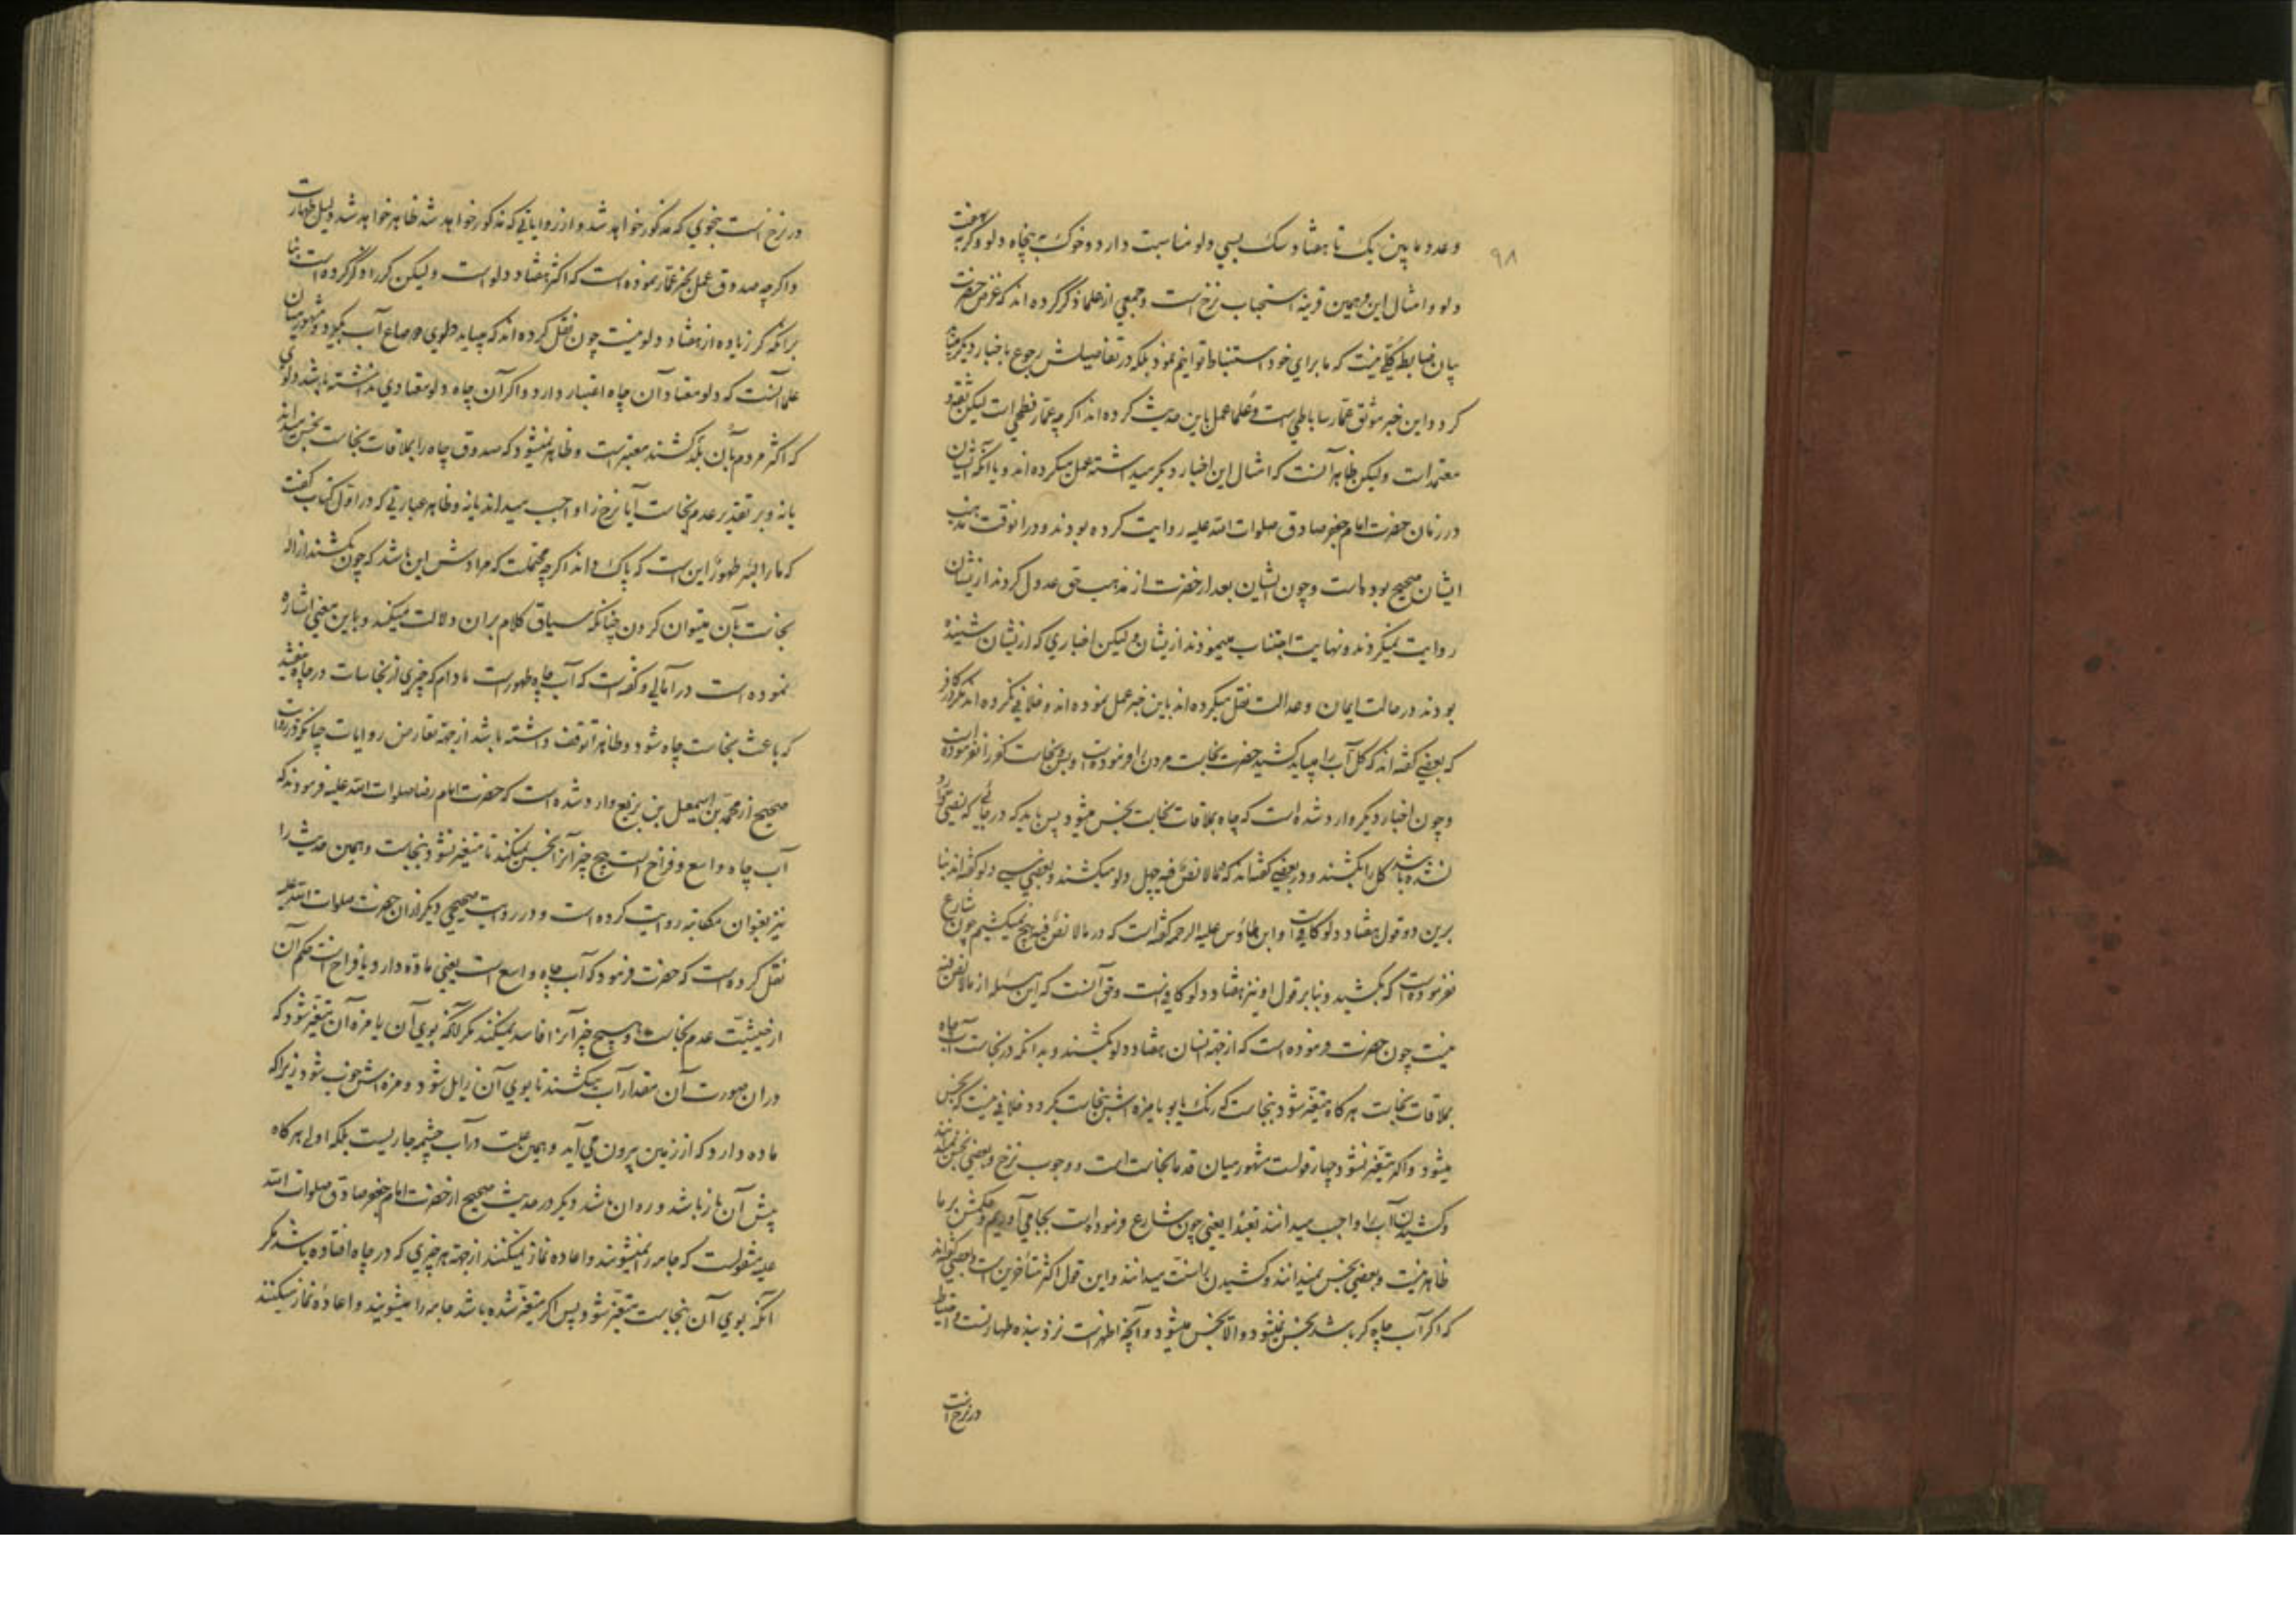 ۹۸
و عدد ما بین یک تا هفتاد و سک بسی دلو مناسبت دارد و خوک به پنجاه دلو و گربه بهفت
دلو و امثال این و همین قرینه استحباب نزح است و جمعی از علما ذکر کرده اند که غرض حضرت
بیان ضابطه کلیه نیست که ما برای خود استنباط توانیم نمود بلکه در تفاصیلش رجوع باخبار دیگر باید
کرد و این خبر موثق عمار ساباطی است و علما عمل باین حدیث کرده اند اگر چه عمار فطحی است لیکن ثقه و
معتمد است و لیکن ظاهر آنست که امثال این اخبار دیگر میداشته عمل میکرده اند و یا آنکه ایشان
در زمان حضرت امام جعفر صادق صلوات الله علیه روایت کرده بودند و در انوقت مذهب
ایشان صحیح بوده است و چون ایشان بعد از حضرت از مذهب حق عدول کردند از ایشان
روایت نمیکردند و نهایت اجتناب مینمودند از یشان و لیکن اخباری که از یشان شنیده
بودند در حالت ایمان و عدالت نقل میکرده اند باین خبر عمل نموده اند و خلافی نکرده اند مگر در کافر
که بعضی گفته اند که کل آب را میباید کشید حضرت نجاست مردن را فرموده است و بس و نجاست کفر را نفرموده است
و چون اخبار دیگر وارد شده است که چاه بملاقات نجاست نجس میشود پس باید که در جائی که نصی وارد
نشده باشد کل را بکشند و در بعضی گفته اند که مما لا نص فیه چهل دلو میکشند و بعضی سی دلو گفته اند بنا
برین دو قول هفتاد دلو کافیست و ابن طاوس علیه الرحمه گفته است که در ما لا نص فیه هیچ نمیکشیم چون شارع
نفرموده است که بکشید و بنا بر قول او نیز هفتاد دلو کافیست و حق آنست که این مسئله از ما لا نص فیه
نیست چون حضرت فرموده است که از جهة انسان هفتاد دلو بکشند و بدانکه در نجاست آب چاه
بملاقات نجاست هرگاه متغیر شود بنجاست که رنگ یا بو یا مزه اش بنجاست بگردد خلافی نیست که نجس
میشود و اگر متغیر نشود چهار قولست مشهور میان قدما نجاست است و وجوب نزح و بعضی نجس نمیدانند
و کشیدن آب را واجب میدانند تعبدا یعنی چون شارع فرموده است بجا می آوریم و حکمتش بر ما
ظاهر نیست و بعضی نجس نمیدانند و کشیدن را سنت میدانند و این قول اکثر متأخرین است و بعضی گفته اند
که اگر آب چاه کر باشد نجس نمیشود و الا نجس میشود و آنچه اظهر است نزد بنده طهارتست و احتیاط
در نزح است
در نزح است بنحوی که مذکور خواهد شد و از روایاتی که مذکور خواهد شد ظاهر خواهد شد دلیل طهارت
و اگر چه صدوق عمل بخبر عمار نموده است که اکثر هفتاد دلو است و لیکن کر را ذکر کرده است بنا
برانکه کر زیاده از هفتاد دلو نیست چون نقل کرده اند که میباید دلوی صاع آب بگیرد و مشهور میان
علما آنست که دلو معتاد آن چاه اعتبار دارد و اگر آن چاه دلو معتادی نداشته باشد دلوی
که اکثر مردم بآن بلد کشند معتبر است و ظاهر نمیشود که صدوق چاه را بملاقات نجاست نجس میداند
یا نه و بر تقدیر عدم نجاست آیا نزح را واجب میداند یا نه و ظاهر عبارتی که در اول کتاب گفت
که ماء البئر طهور این است که پاک داند اگر چه محتملست که مرادش این باشد که چون بکشند ازاله
نجاست بآن میتوان کردن چنانکه سیاق کلام بران دلالت میکند و باین معنی اشاره
نموده است در امالی و گفته است که آب چاه طهور است مادام که چیزی از نجاسات در چاه نیفتد
که باعث نجاست چاه شود و ظاهرا توقف داشته باشد از جهة تعارض روایات چنانکه در روایت
صحیح از محمد بن اسمعیل بن بزیع وارد شده است که حضرت امام رضا صلوات الله علیه فرمودند که
آب چاه واسع و فراخ است هیچ چیز آنرا نجس نمیکند تا متغیر نشود بنجاست و همین حدیث را
نیز بعنوان مکاتبه روایت کرده است و در روایت صحیحی دیگر از ان حضرت صلوات الله علیه
نقل کرده است که حضرت فرمود که آب چاه واسع است یعنی ماده دارد یا فراخ است حکم آن
از حیثیت عدم نجاست و هیچ چیز آنرا فاسد نمیکند مگر آنکه بوی آن یا مزه آن متغیر شود که
دران صورت آن مقدار آب میکشند تا بوی آن زایل شود و مزه اش خوب شود زیرا که
ماده دارد که از زمین بیرون می آید و همین علت در آب چشمه جاریست بلکه اولی هرگاه
پیش آن باز باشد و روان باشد دیگر در حدیث صحیح از حضرت امام جعفر صادق صلوات الله
علیه منقولست که جامه را نمیشویند و اعاده نماز نمیکنند از جهة هر چیزی که در چاه افتاده باشد مگر
آنکه بوی آن بنجاست متغیر شود پس اگر متغیر شده باشد جامه را میشویند و اعاده نماز میکنند